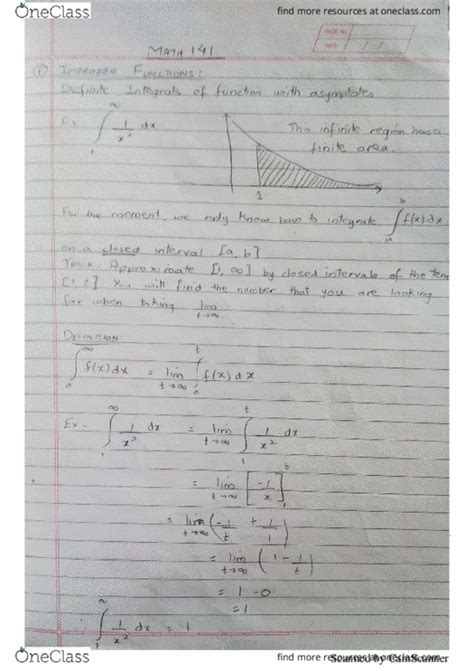 OneClass
find more resources at oneclass.com
MATH 141
① IMPROPER FUNCTIONS:
Definite Integrals of function with asymptotes
Ex- ∫₁^∞ 1/x² dx
This infinite region has a
finite area.
1
For the moment, we only know how to integrate ∫ₐᵇ f(x)dx
on a closed interval [a,b]
Approximate [1,∞] by closed intervals of the
[1,t] You will find the number that you are looking
for when taking lim t→∞
DEFINITION:
∫ₐ^∞ f(x)dx = lim t→∞ ∫ₐᵗ f(x)dx
Ex- ∫₁^∞ 1/x² dx = lim t→∞ ∫₁ᵗ 1/x² dx
= lim t→∞ [-1/x]
= lim t→∞ (-1/t + 1/1)
= lim t→∞ (1 - 1/t)
= 1 - 0
= 1
∴ ∫₁^∞ 1/x² dx = 1
OneClass
find more resources at oneclass.com
Scanned by CamScanner